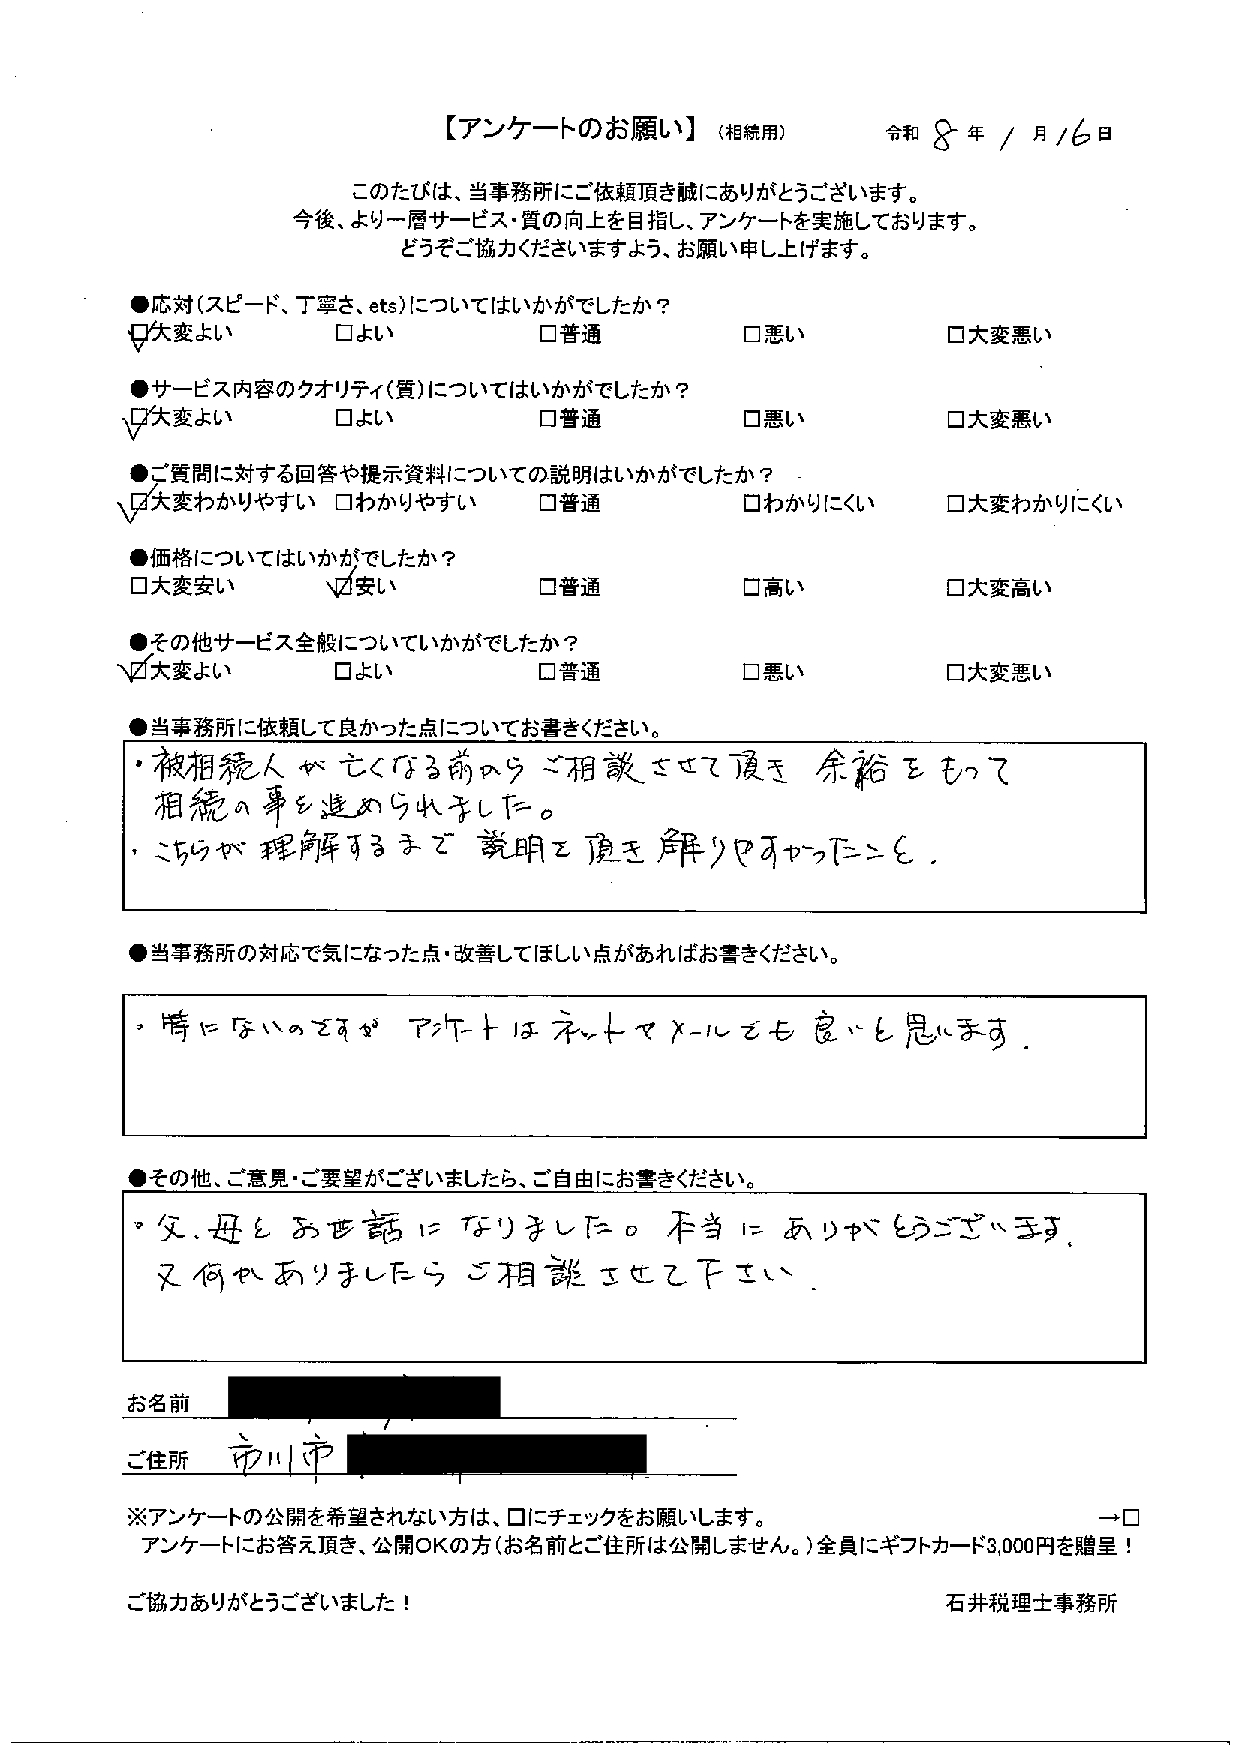 【アンケートのお願い】（相続用） 令和 8 年 1 月 16 日
このたびは、当事務所にご依頼頂き誠にありがとうございます。
今後、より一層サービス・質の向上を目指し、アンケートを実施しております。
どうぞご協力くださいますよう、お願い申し上げます。
●応対（スピード、丁寧さ、ets）についてはいかがでしたか？
☑大変よい □よい □普通 □悪い □大変悪い
●サービス内容のクオリティ（質）についてはいかがでしたか？
☑大変よい □よい □普通 □悪い □大変悪い
●ご質問に対する回答や提示資料についての説明はいかがでしたか？
☑大変わかりやすい □わかりやすい □普通 □わかりにくい □大変わかりにくい
●価格についてはいかがでしたか？
□大変安い ☑安い □普通 □高い □大変高い
●その他サービス全般についていかがでしたか？
☑大変よい □よい □普通 □悪い □大変悪い
●当事務所に依頼して良かった点についてお書きください。
・被相続人が亡くなる前からご相談させて頂き 余裕をもって
相続の事を進められました。
・こちらが理解するまで 説明を頂き解りやすかったこと.
●当事務所の対応で気になった点・改善してほしい点があればお書きください。
・特にないのですが アンケートはネットやメールでも良いと思います.
●その他、ご意見・ご要望がございましたら、ご自由にお書きください。
・父、母とお世話になりました。本当にありがとうございます.
又何かありましたらご相談させて下さい.
お名前
ご住所 市川市
※アンケートの公開を希望されない方は、□にチェックをお願いします。 →□
アンケートにお答え頂き、公開OKの方（お名前とご住所は公開しません。）全員にギフトカード3,000円を贈呈！
ご協力ありがとうございました！ 石井税理士事務所